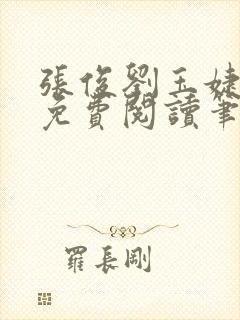 張俊劉玉婕
免費閱讀筆
羅長剛